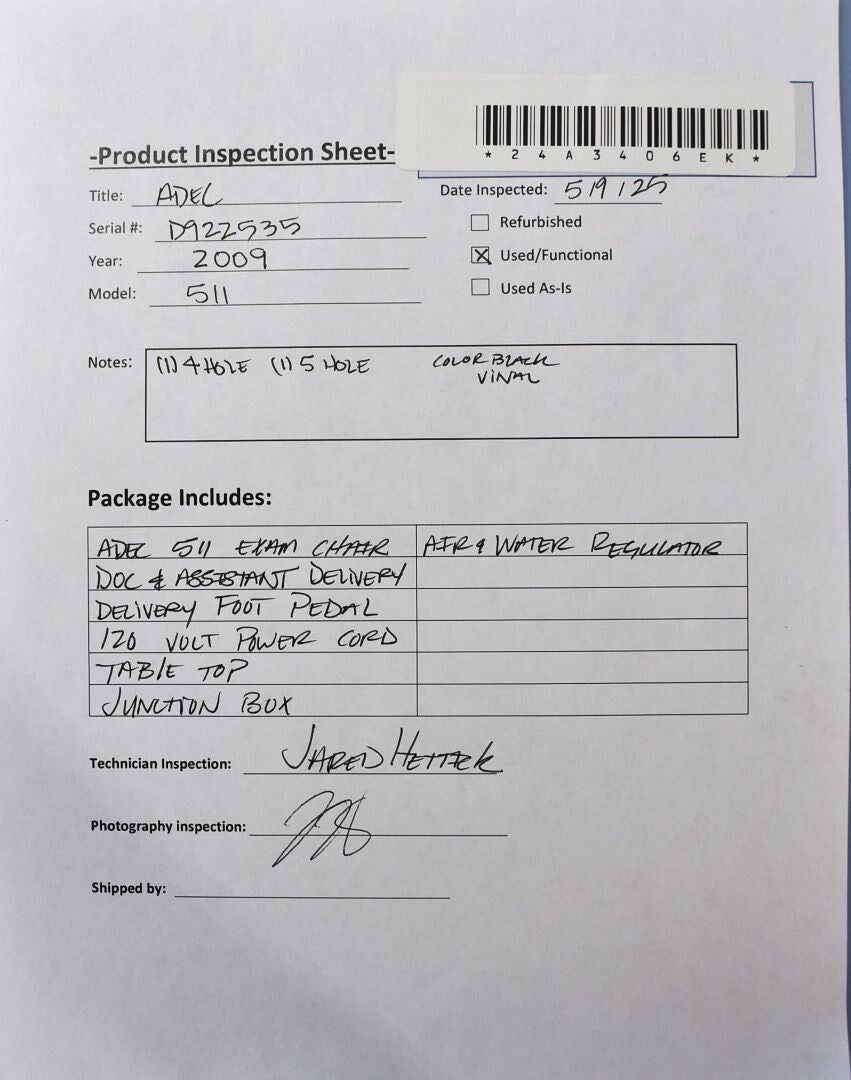 *24A3406EK*
-Product Inspection Sheet-
Title: ADEC
Date Inspected: 5/9/25
Serial #: D922535
Refurbished
Year: 2009
Used/Functional
Model: 511
Used As-Is
Notes: (1) 4 HOLE (1) 5 HOLE COLOR BLACK
VINAL
Package Includes:
ADEC 511 EXAM CHAIR AIR & WATER REGULATOR
DOC & ASSISTANT DELIVERY
DELIVERY FOOT PEDAL
120 VOLT POWER CORD
TABLE TOP
JUNCTION BOX
Technician Inspection: JARED
Photography inspection:
Shipped by: